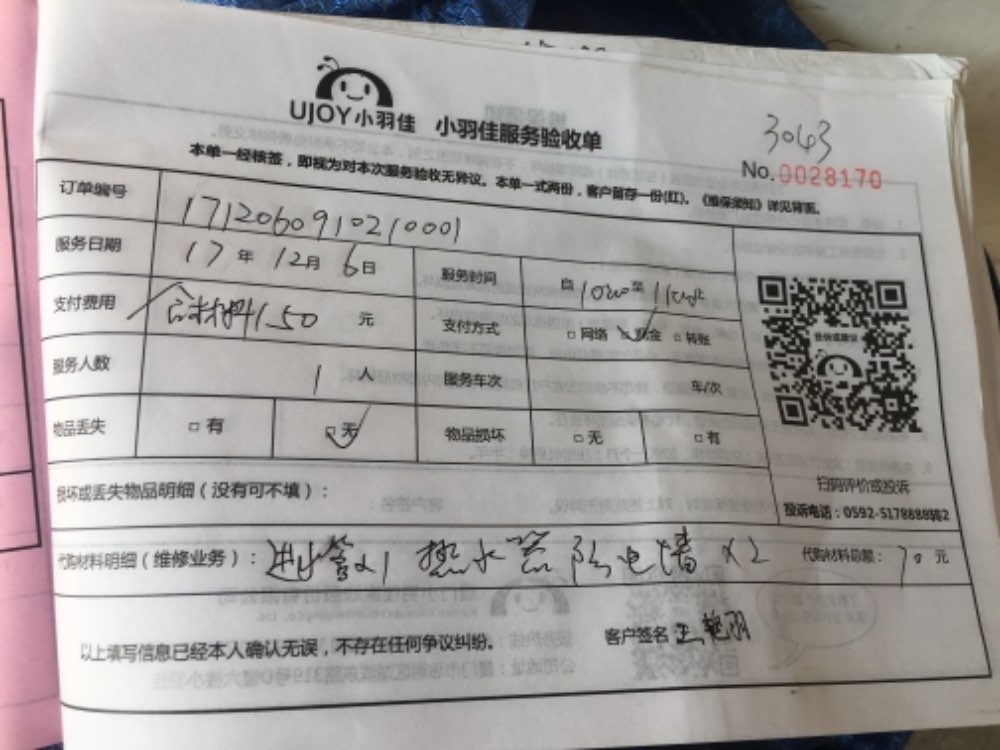 UJOY小羽佳 小羽佳服务验收单
3043
No.0028170
本单一经核签，即视为对本次服务验收无异议。本单一式两份，客户留存一份(红)。《维保须知》详见背面。
订单编号 1712060910210001
服务日期 17年12月6日 服务时间 自1000至1100止
支付费用 含材料150元 支付方式 □网络 □现金 □转账
服务人数 1人 服务车次 车/次
物品丢失 □有 □无 物品损坏 □无 □有
扫码评价或投诉
投诉电话：0592-5178888转2
损坏或丢失物品明细（没有可不填）：
代购材料明细（维修业务）：进水管x1 热水器防电墙x2 代购材料总额：70元
以上填写信息已经本人确认无误，不存在任何争议纠纷。 客户签名 王艳羽